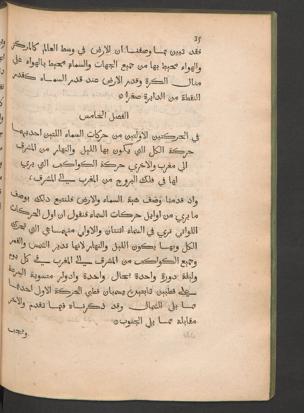 فقد تبين بما وصفنا ان الارض في وسط العالم كالمركز
والهواء محيط بها من جميع الجهات والسماء محيط بالهواء على
مثال الكرة وقدر الارض عند قدر السماء كقدر
النقطة من الدايرة صغرا
الفصل الخامس
في الحركتين الاولتين من حركات السماء اللتين احديهما
حركة الكل التي يكون بها الليل والنهار من المشرق
الى مغرب والاخرى حركة الكواكب التي يرى
لها في فلك البروج من المغرب الى المشرق
واذ قدمنا وصف هيئة السماء والارض فلنتبع ذلك بوصف
ما يرى من اوايل حركات السماء فنقول ان اول الحركات
اللواتي ترى في السماء اثنتان والاولى منهما هي التي تحرك
الكل وبها يكون الليل والنهار لانها تدير الشمس والقمر
وجميع الكواكب من المشرق الى المغرب في كل يوم
وليلة دورة واحدة بحال واحدة وادوار متسوية السرعة
على قطبين ثابتين يسميان قطبي الحركة الاولى احدهما
مما يلي الشمال وقد ذكرناه فيما تقدم والاخر
مقابله مما يلي الجنوب
ويجب